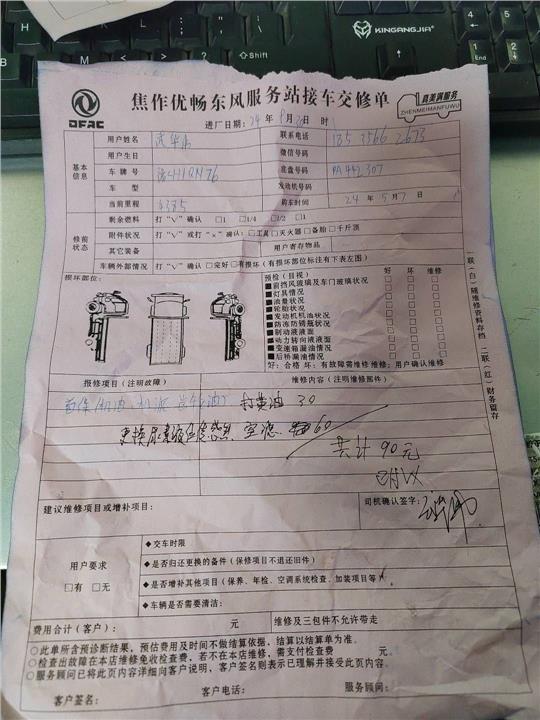 KINGANGJIA
Shift
End
DFAC
焦作优畅东风服务站接车交修单
真美满服务
ZHENMEIMANFUWU
进厂日期：24 年 8 月 20 日 时
基本信息
用户姓名
联系电话
用户生日
微信号码
车牌号
底盘号码 RA442307
车型
发动机号码
当前里程
购车时间 24 年 5 月 7 日
修前状态
剩余燃料 打“√”确认 □1 □1/4 □1/2 □1
附件状况 打“√”或打“×”确认：□工具□灭火器□备胎□千斤顶
其它装备 用户寄存物品
车辆外部情况 打“√”确认□完好□有损坏（有损坏部位标注有下表左图）
损坏部位：
预检（目视） 好 坏 维修
■前挡风玻璃及车门玻璃状况
■灯具情况
■油量状况
■轮胎状况
■发动机机油状况
■防冻防锈瓶状况
■制动液液面
■动力转向液液面
■变速箱漏油情况
■后桥漏油情况
好：合格 坏：有故障需维修 维修：用户确认维修
一联（白）随维修资料存档 二联（红）财务留存
报修项目（注明故障）
维修内容（注明维修部件）
机油 机滤 打黄油 30
更换尿素液位传感器 空滤 60
共计 90元
建议维修项目或增补项目：
司机确认签字：
用户要求
□有 □无
◆交车时限
◆是否归还更换的备件（保修项目不退还旧件）
◆是否增补其他项目（保养、年检、空调系统检查、加装项目等）
◆车辆是否需要清洁：
费用合计（客户）： 元
维修及三包件不允许带走
○此单所含预诊断结果，预估费用及时间不做结算依据，结算以结算单为准。
○检查出故障在本店维修免收检查费，若不在本店维修，需支付检查费 元。
○服务顾问已将此页内容详细向客户说明，客户签名则表示已理解并接受此页内容。
客户签名： 客户电话： 服务顾问：